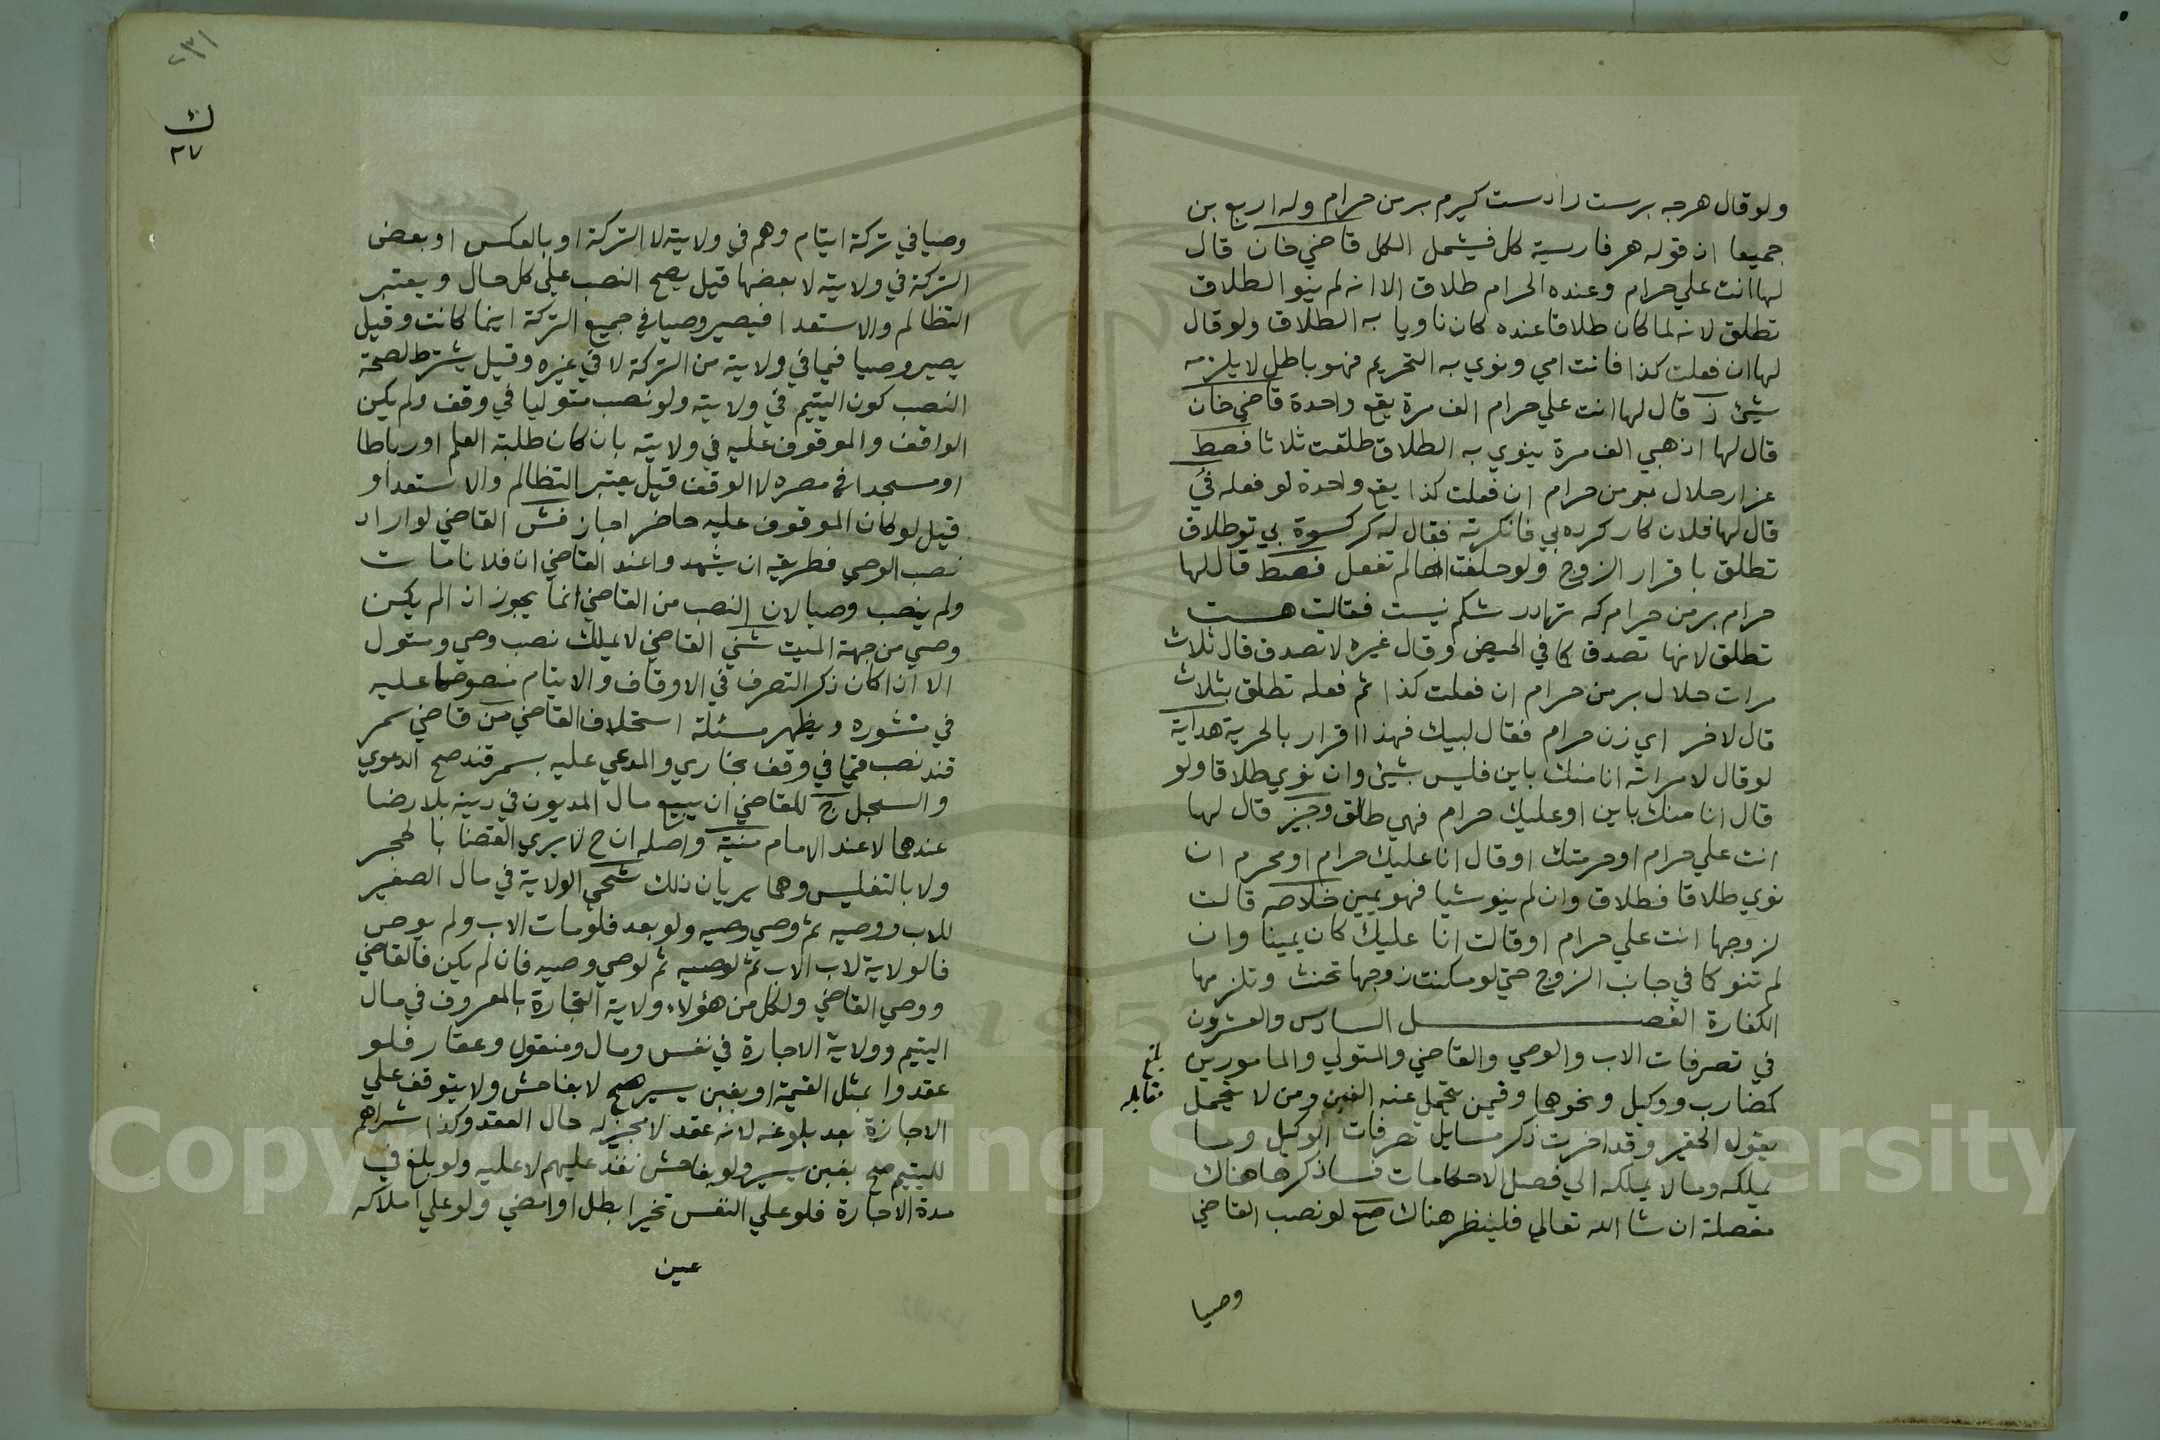 ولو قال هرجه برست راست كيرم بر من حرام وله اربع بن
جميعا ان قوله هر فارسية كل فيشمل الكل قاضي خان قال
لها انت علي حرام وعنده الحرام طلاق الا انه لم ينو الطلاق
تطلق لانه لما كان طلاقا عنده كان ناويا به الطلاق ولو قال
لها ان فعلت كذا فانت امي ونوي به التحريم فهو باطل لا يلزمه
شيئ ن قال لها انت علي حرام الف مرة يقع واحدة قاضي خان
قال لها اذهبي الف مرة ينوي به الطلاق طلقت ثلاثا فصط
حلال بر من حرام ان فعلت كذا يقع واحدة لو فعله في
قال لها فلان كار كرده بي فانكرته فقال له كر بي تو طلاق
تطلق باقرار الزوج ولو حلفت انها لم تفعل فصط قال لها
حرام بر من حرام كه ترا در شكم نيست فقالت هست
تطلق لانها تصدق كما في الحيض وقال غيره لا تصدق قال ثلاث
مرات حلال بر من حرام ان فعلت كذا ثم فعله تطلق بثلاث
قال لاخر اي زن حرام فقال لبيك فهذا اقرار بالحرية هداية
لو قال لامراته انا منك باين فليس بشيئ وان نوي طلاقا ولو
قال انا منك باين او عليك حرام فهي طالق وجيز قال لها
انت علي حرام او حرمتك او قال انا عليك حرام او محرم ان
نوي طلاقا فطلاق وان لم ينو شيا فهو يمين خلاصه قالت
لزوجها انت علي حرام او قالت انا عليك كان يمينا وان
لم تنو كما في جانب الزوج حتي لو مكنت زوجها تحنث وتلزمها
الكفارة الفصل السادس والعشرون
في تصرفات الاب والوصي والقاضي والمتولي والمامورين
كمضارب ووكيل ونحوهما وفيمن يتحمل عنه الغبن ومن لا يتحمل
يقول الحقير وقد اخرت ذكر مسايل تصرفات الوكيل وما
يملكه وما لا يملكه الي فصل الاحكامات فساذكرها هناك
مفصلة ان شا الله تعالي فلينظر هناك صع لو نصب القاضي
وصيا
بلغ
مقابله
٢٣١
ك
٢٧
وصيا في تركة ايتام وهم في ولايته لا التركة او بالعكس او بعض
التركة في ولايته لا بعضها قيل يصح النصب علي كل حال ويعتبر
التظالم والاستعدا فيصير وصيا في جميع التركة اينما كانت وقيل
يصير وصيا فيما في ولايته من التركة لا في غيره وقيل يشترط لصحة
النصب كون اليتيم في ولايته ولو نصب متوليا في وقف ولم يكن
الواقف والموقوف عليه في ولايته بان كان طلبة العلم او رباطا
او مسجدا في مصره لا الوقف قيل يعتبر التظالم والاستعدا و
قيل لو كان الموقوف عليه حاضرا جاز فش القاضي لو اراد
نصب الوصي فطريقه ان يشهدوا عند القاضي ان فلانا مات
ولم ينصب وصيا لان النصب من القاضي انما يجوز اذا لم يكن
وصي من جهة الميت شئي القاضي لا يملك نصب وصي ومتول
الا اذا كان ذكر التصرف في الاوقاف والايتام منصوصا عليه
في منشوره ويظهر مسئلة استخلاف القاضي من قاضي سمر
قند نصب قيما في وقف بخاري والمدعي عليه بسمرقند صح الدعوي
والسجل ج للقاضي ان يبيع مال المديون في دينه بلا رضا
عندهما لا عند الامام منية واصله ان ح لا يري القضا بالحجر
ولا بالتفليس وهما يريان ذلك شحي الولاية في مال الصغير
للاب ووصيه ثم وصي وصيه ولو بعد فلو مات الاب ولم يوص
فالولاية لاب الاب ثم لوصيه ثم لوصي وصيه فان لم يكن فالقاضي
ووصي القاضي ولكل من هؤلاء ولاية التجارة بالمعروف في مال
اليتيم وولاية الاجارة في نفس ومال ومنقول وعقار فلو
عقدوا بمثل القيمة او بغبن يسير صح لا بفاحش ولا يتوقف علي
الاجازة بعد بلوغه لانه عقد لا مجيز له حال العقد وكذا شراهم
لليتيم صح بغبن يسير ولو بفاحش نفذ عليهم لا عليه ولو بلغ في
مدة الاجارة فلو علي النفس تخير ابطل او امضي ولو علي املاكه
عين
Copyright © King Saud University
1957